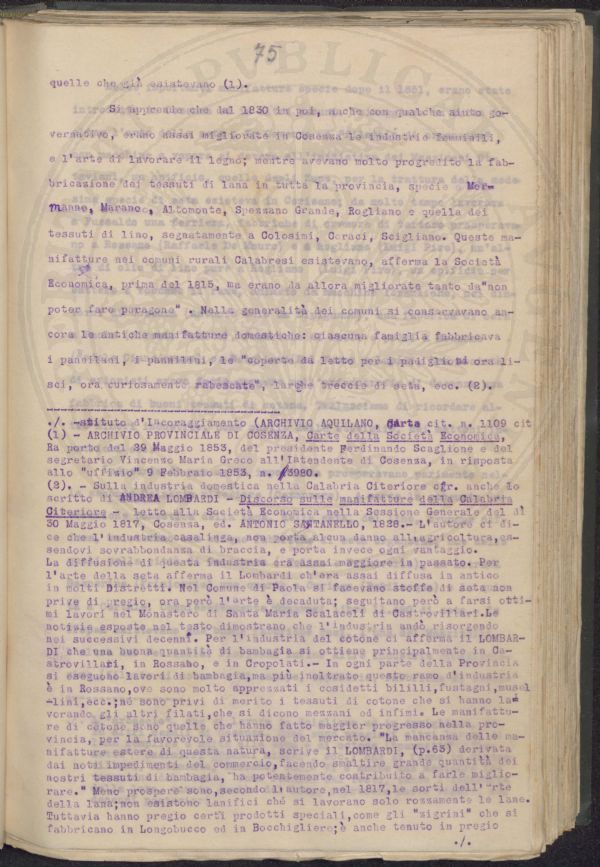 75
quelle che già esistevano (1).
Si apprende che dal 1830 in poi, anche con qualche aiuto go-
vernativo, erano assai migliorate in Cosenza le industrie femminili,
e l'arte di lavorare il legno; mentre avevano molto progredito la fab-
bricazione dei tessuti di lana in tutta la provincia, specie Mor-
manno, Marano, Altomonte, Spezzano Grande, Rogliano e quella dei
tessuti di lino, segnatamente a Colosini, Caraci, Scigliano. Queste ma-
nifatture nei comuni rurali Calabresi esistevano, afferma la Società
Economica, prima del 1815, ma erano da allora migliorate tanto da "non
poter fare paragone" . Nella generalità dei comuni si conservavano an-
cora le antiche manifatture domestiche: ciascuna famiglia fabbricava
i pannilani, i pannilini, le "coperte da letto per i padiglioni ora li-
sci, ora curiosamente rabescate", larghe treccie di seta, ecc. (2).
./. -stituto d'Incoraggiamento (ARCHIVIO AQUILANO, Carta cit. n. 1109 cit
(1) - ARCHIVIO PROVINCIALE DI COSENZA, Carte della Società Economica,
Ra porto del 29 Maggio 1853, del presidente Ferdinando Scaglione e del
segretario Vincenzo Maria Greco all'Intendente di Cosenza, in risposta
allo "uffizio" 9 Febbraio 1853, n. 3980.
(2). - Sulla industria domestica nella Calabria Citeriore cfr. anche lo
scritto di ANDREA LOMBARDI - Discorso sulle manifatture della Calabria
Citeriore - letto alla Società Economica nella Sessione Generale del dì
30 Maggio 1817, Cosenza, ed. ANTONIO SANTANELLO, 1828.- L'autore ci di-
ce che l'industria casalinga, non porta alcun danno all'agricoltura,es-
sendovi sovrabbondanza di braccia, e porta invece ogni vantaggio.
La diffusione di questa industria era assai maggiore in passato. Per
l'arte della seta afferma il Lombardi ch'era assai diffusa in antico
in molti Distretti. Nel Comune di Paola si facevano stoffe di seta non
prive di pregio, ora però l'arte è decaduta; seguitano però a farsi otti-
mi lavori nel Monastero di Santa Maria Scalaceli di Castrovillari.Le
notizie esposte nel testo dimostrano che l'industria andò risorgendo
nei successivi decenni. Per l'industria del cotone ci afferma il LOMBAR-
DI che una buona quantità di bambagia si ottiene principalmente in Ca-
strovillari, in Rossano, e in Cropolati.- In ogni parte della Provincia
si eseguono lavori di bambagia,ma più inoltrato questo ramo d'industria
è in Rossano,ove sono molto apprezzati i cosidetti bililli,fustagni,musel
-lini,ecc.;né sono privi di merito i tessuti di cotone che si hanno la=
vorando gli altri filati,che si dicono mezzani ed infimi. Le manifattu-
re di cotone sono quelle che hanno fatto maggior progresso nella pro-
vincia, per la favorevole situazione del mercato. "La mancanza delle ma-
nifatture estere di questa natura, scrive il LOMBARDI, (p.65) derivata
dai noti impedimenti del commercio,facendo smaltire grande quantità dei
nostri tessuti di bambagia, ha potentemente contribuito a farle miglio-
rare." Meno prospere sono,secondo l'autore,nel 1817,le sorti dell'arte
della lana;non esistono lanifici ché si lavorano solo rozzamente le lane.
Tuttavia hanno pregio certi prodotti speciali,come gli "zigrini" che si
fabbricano in Longobucco ed in Bocchigliere;è anche tenuto in pregio
./.